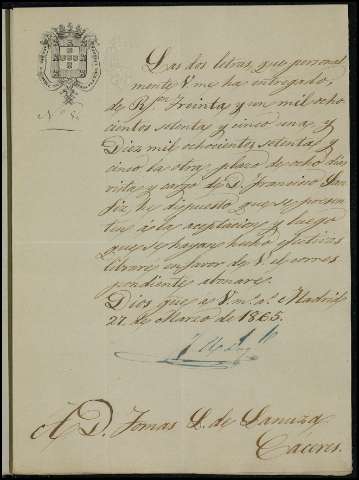 Las dos letras, que personal
mente V. me ha entregado,
de Rvon. treinta y un mil ocho
cientos setenta y cinco una, y
Diez mil ochocientos setenta y
cinco la otra, plazo de ocho dias
vista y cargo de D. Francisco
he dispuesto que se presen
ten á la aceptacion y luego
que se hayan hecho efectivas
librare en favor de V. el corres
pendiente abonaré.
Dios gue. á V. ms. as. Madrid
27 de Marzo de 1865.
A D. Tomas L. de Sanuza
Caceres.